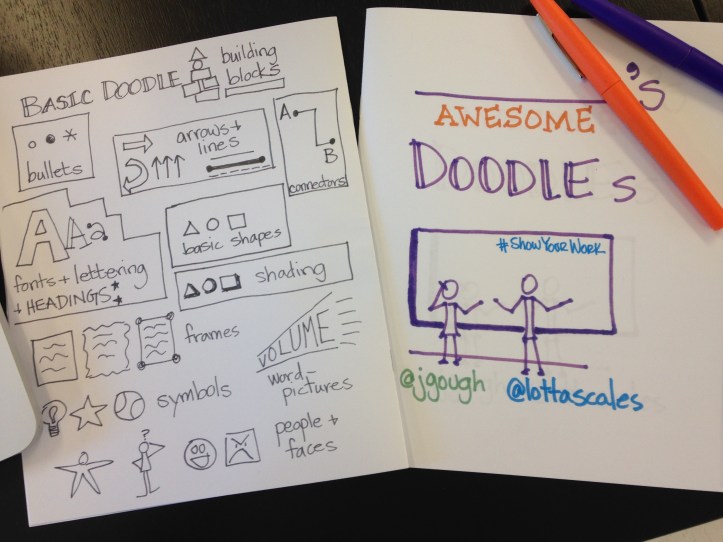 BASIC DOODLE
building
blocks
bullets
arrows +
lines
A
B
connectors
A Aa
fonts + lettering
+ HEADINGS
basic shapes
shading
frames
VOLUME
word-
pictures
symbols
?
people +
faces
's
AWESOME
DOODLE s
#ShowYourWork
@jgough
@lottascales